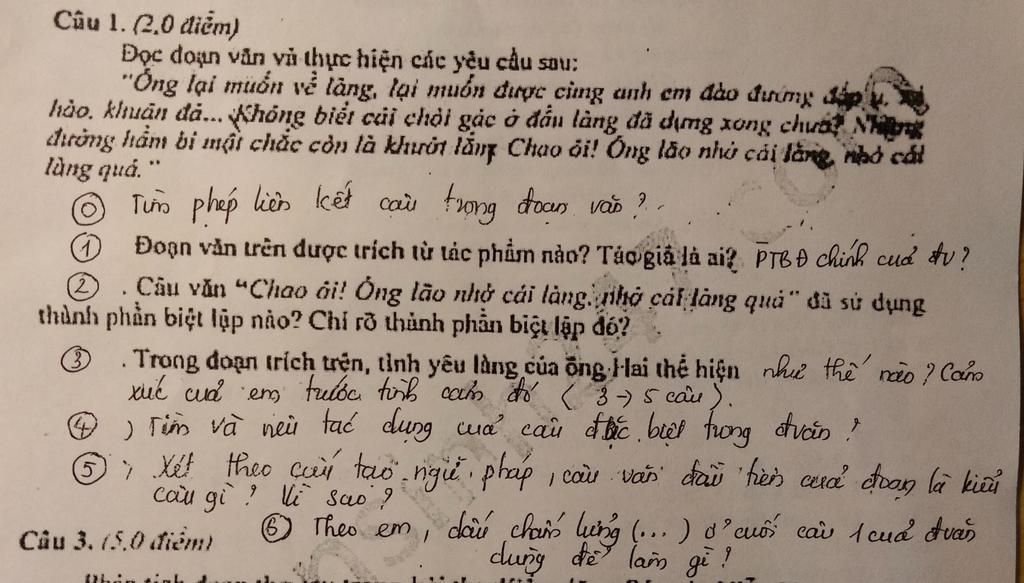 Câu 1. (2,0 điểm)
Đọc đoạn văn và thực hiện các yêu cầu sau:
"Ông lại muốn về làng, lại muốn được cùng anh em đào đường đắp ụ, xẻ
hào, khuân đá... Không biết cái chòi gác ở đầu làng đã dựng xong chưa? Những
đường hầm bí mật chắc còn là khướt lắm. Chao ôi! Ông lão nhớ cái làng, nhớ cái
làng quá."
⓪ Tìm phép liên kết câu trong đoạn văn?
① Đoạn văn trên được trích từ tác phẩm nào? Tác giả là ai? PTBĐ chính của đv?
② . Câu văn "Chao ôi! Ông lão nhớ cái làng, nhớ cái làng quá" đã sử dụng
thành phần biệt lập nào? Chỉ rõ thành phần biệt lập đó?
③ . Trong đoạn trích trên, tình yêu làng của ông Hai thể hiện như thế nào? Cảm
xúc của em trước tình cảm đó (3 → 5 câu).
④ ) Tìm và nêu tác dụng của câu đặc biệt trong đvăn?
⑤ ) Xét theo cấu tạo ngữ pháp, câu văn đầu tiên của đoạn là kiểu
câu gì? Vì sao?
⑥ Theo em, dấu chấm lửng (...) ở cuối câu 1 của đvăn
dùng để làm gì?
Câu 3. (5,0 điểm)